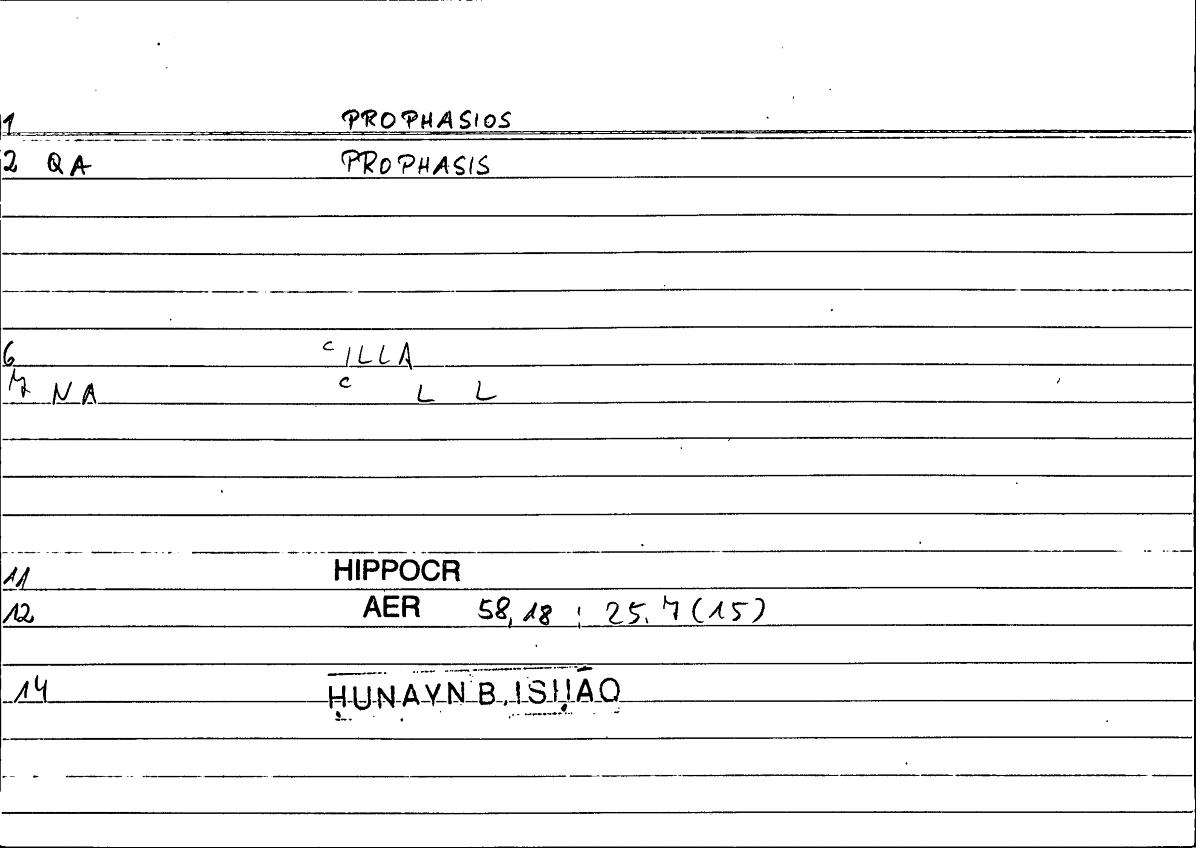 1 PROPHASIOS
2 QA PROPHASIS
6 ᶜILLA
7 NA ᶜ L L
11 HIPPOCR
12 AER 58,18 ; 25.7(15)
14 ḤUNAYN B. ISḤĀQ